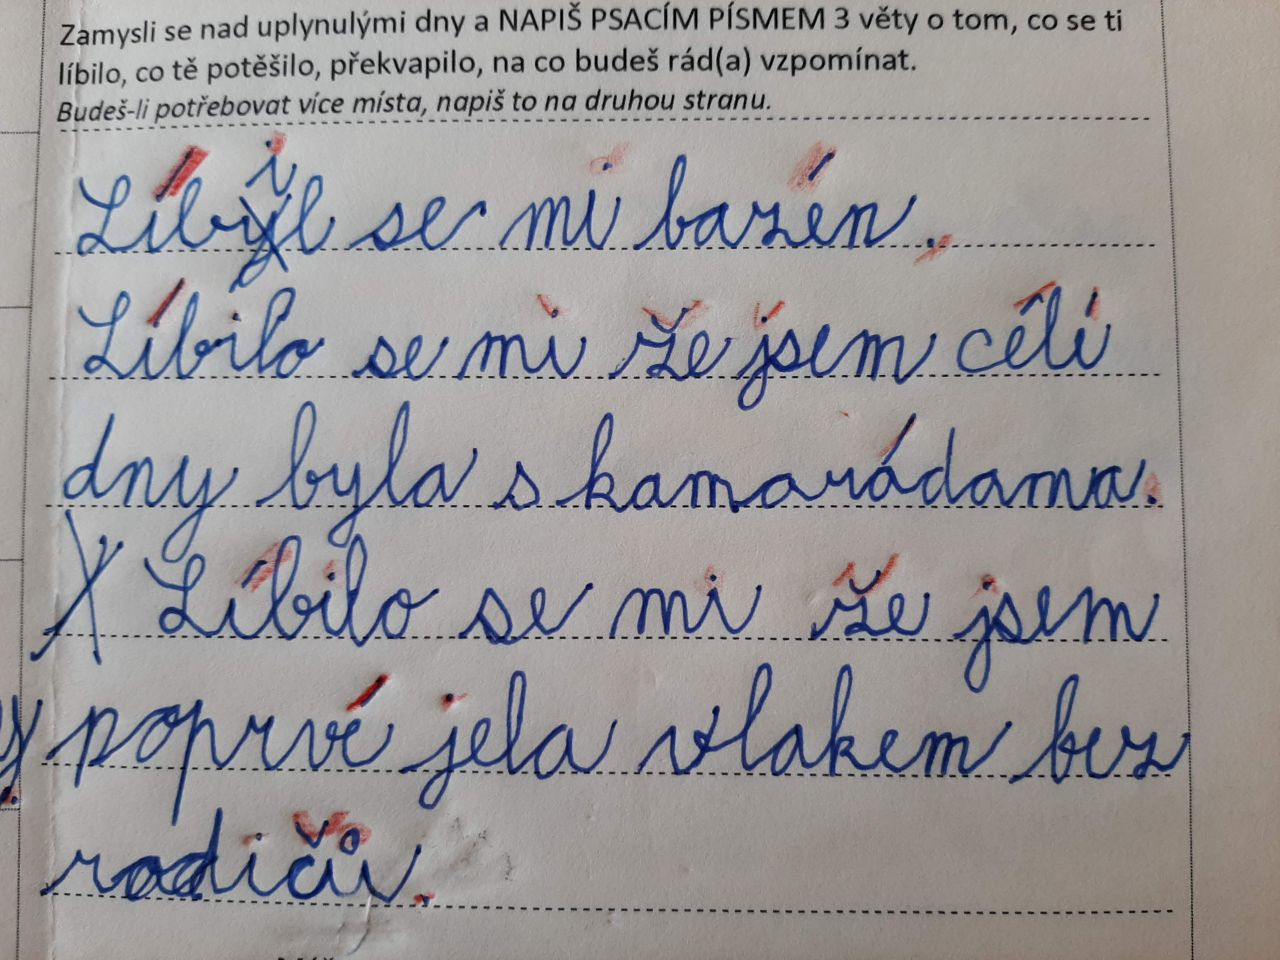 Zamysli se nad uplynulými dny a NAPIŠ PSACÍM PÍSMEM 3 věty o tom, co se ti
líbilo, co tě potěšilo, překvapilo, na co budeš rád(a) vzpomínat.
Budeš-li potřebovat více místa, napiš to na druhou stranu.
Líbil se mi bazén.
Líbilo se mi že jsem céli
dny byla s kamarádama.
Líbilo se mi že jsem
poprvé jela vlakem bez
rodičů.